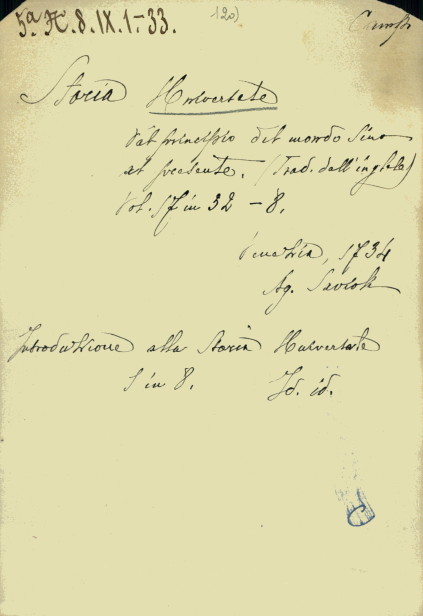 5ª H. 8. IX. 1-33. 120) Camp
Storia Universale
dal principio del mondo sino
al presente. (Trad. dall'inglese)
Vol. 57 in 32 - 8.
Venezia, 1734
Ag. Savioli
Introduzione alla Storia Universale
1 in 8. Id. id.